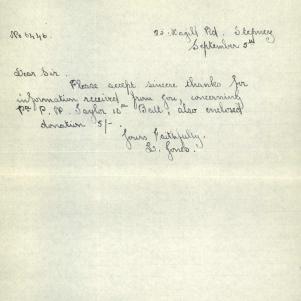 No 6446.
Rd, Stepney
September 5th
Dear Sir.
Please accept sincere thanks for
information received from you, concerning
Pte P. W. Taylor 10th Batt; also enclosed
donation 5/-.
Yours Faithfully.
L. Jones.